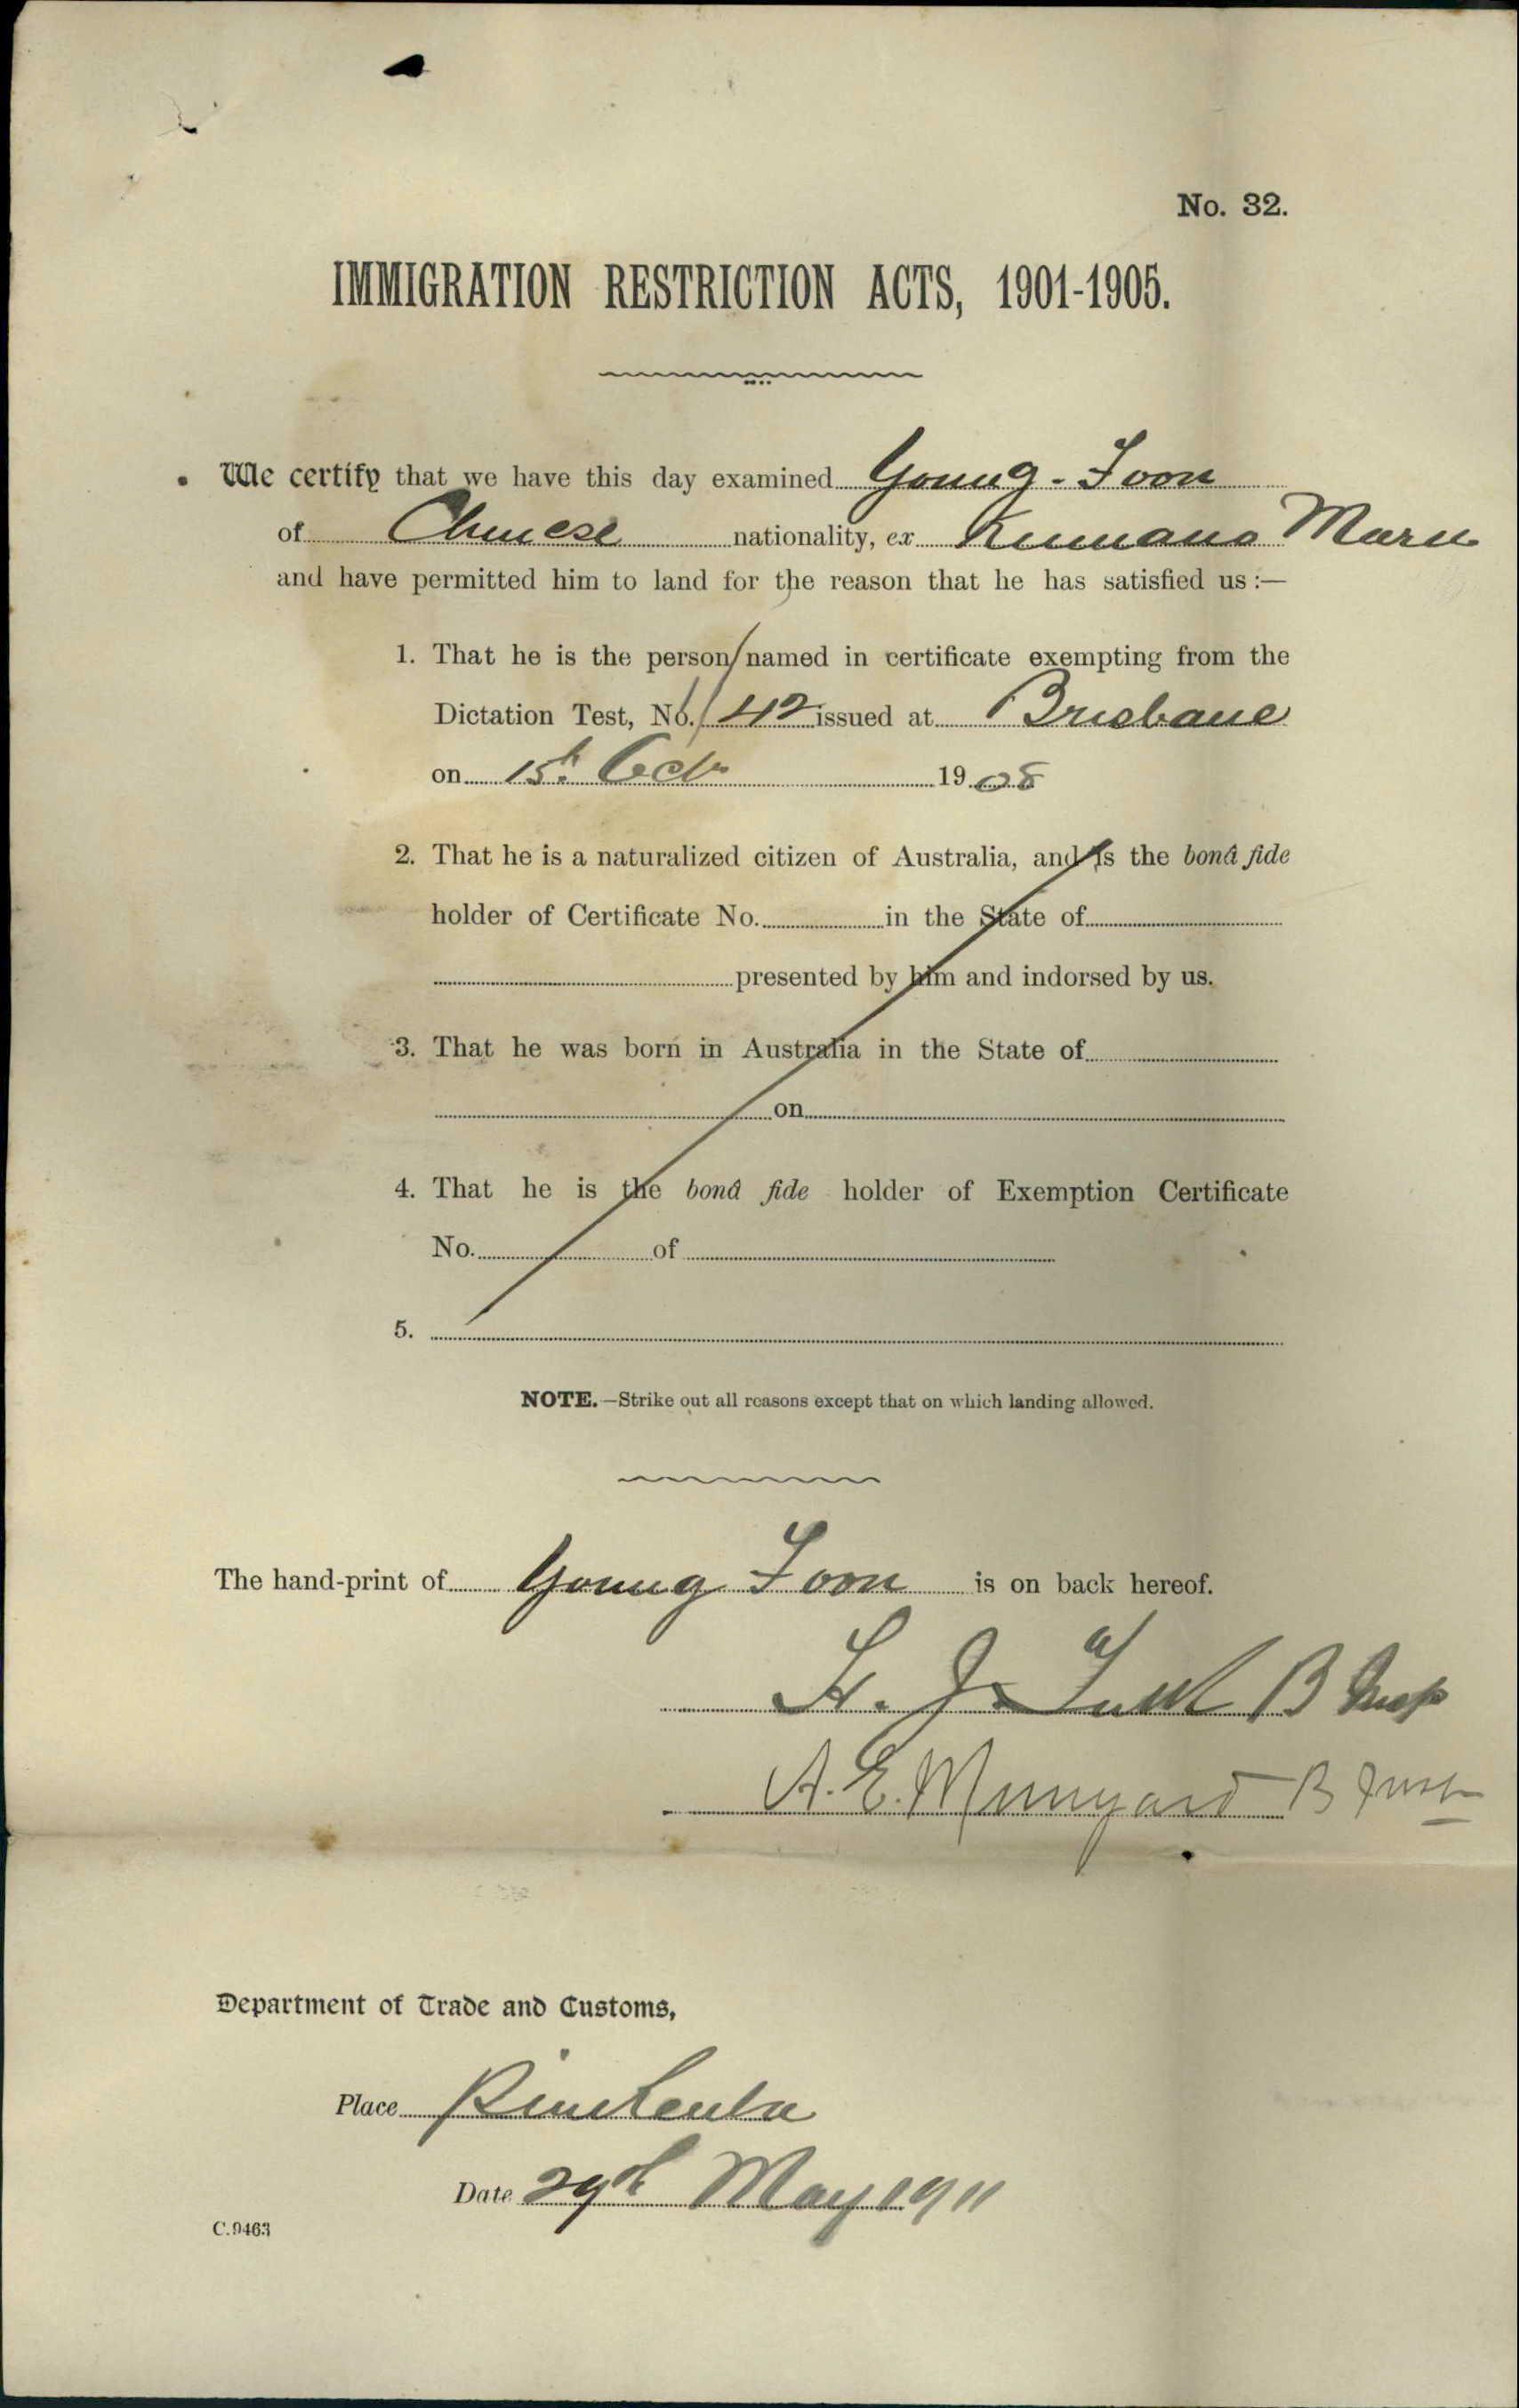 No. 32.
IMMIGRATION RESTRICTION ACTS, 1901-1905.
We certify that we have this day examined Young - Foon
of Chinese nationality, ex Kumano Maru
and have permitted him to land for the reason that he has satisfied us :—
1. That he is the person named in certificate exempting from the
Dictation Test, No. 42 issued at Brisbane
on 15th Oct 1908
2. That he is a naturalized citizen of Australia, and is the bonâ fide
holder of Certificate No. in the State of
presented by him and indorsed by us.
3. That he was born in Australia in the State of
on
4. That he is the bonâ fide holder of Exemption Certificate
No. of
5.
NOTE.—Strike out all reasons except that on which landing allowed.
The hand-print of Young Foon is on back hereof.
H. J. B Insp
A. E. Munyard B Insp
Department of Trade and Customs,
Place Pinkenba
Date 29th May 1911
C.9463